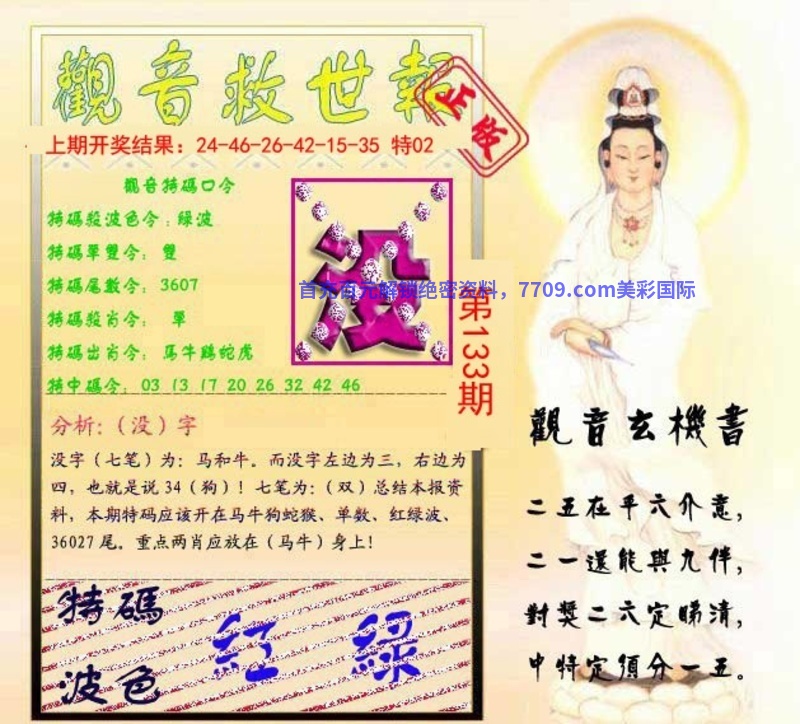 觀音救世報
正版
上期开奖结果：24-46-26-42-15-35 特02
觀音特碼口今
特碼殺波色今：綠波
特碼單雙今： 雙
特碼尾數今：3607
特碼殺肖今： 單
特碼出肖今：馬牛鷄蛇虎
特中碼今：03 13 17 20 26 32 42 46
没
首充百元解锁绝密资料，7709.com美彩国际
第133期
分析：（没）字
没字（七笔）为：马和牛。而没字左边为三，右边为
四，也就是说34（狗）！七笔为：（双）总结本报资
料，本期特码应该开在马牛狗蛇猴、单数、红绿波、
36027尾。重点两肖应放在（马牛）身上！
特碼
波色
紅 綠
觀音玄機書
二五在平六介意，
二一還能與九伴，
對獎二六定睇清，
中特定須分一五。